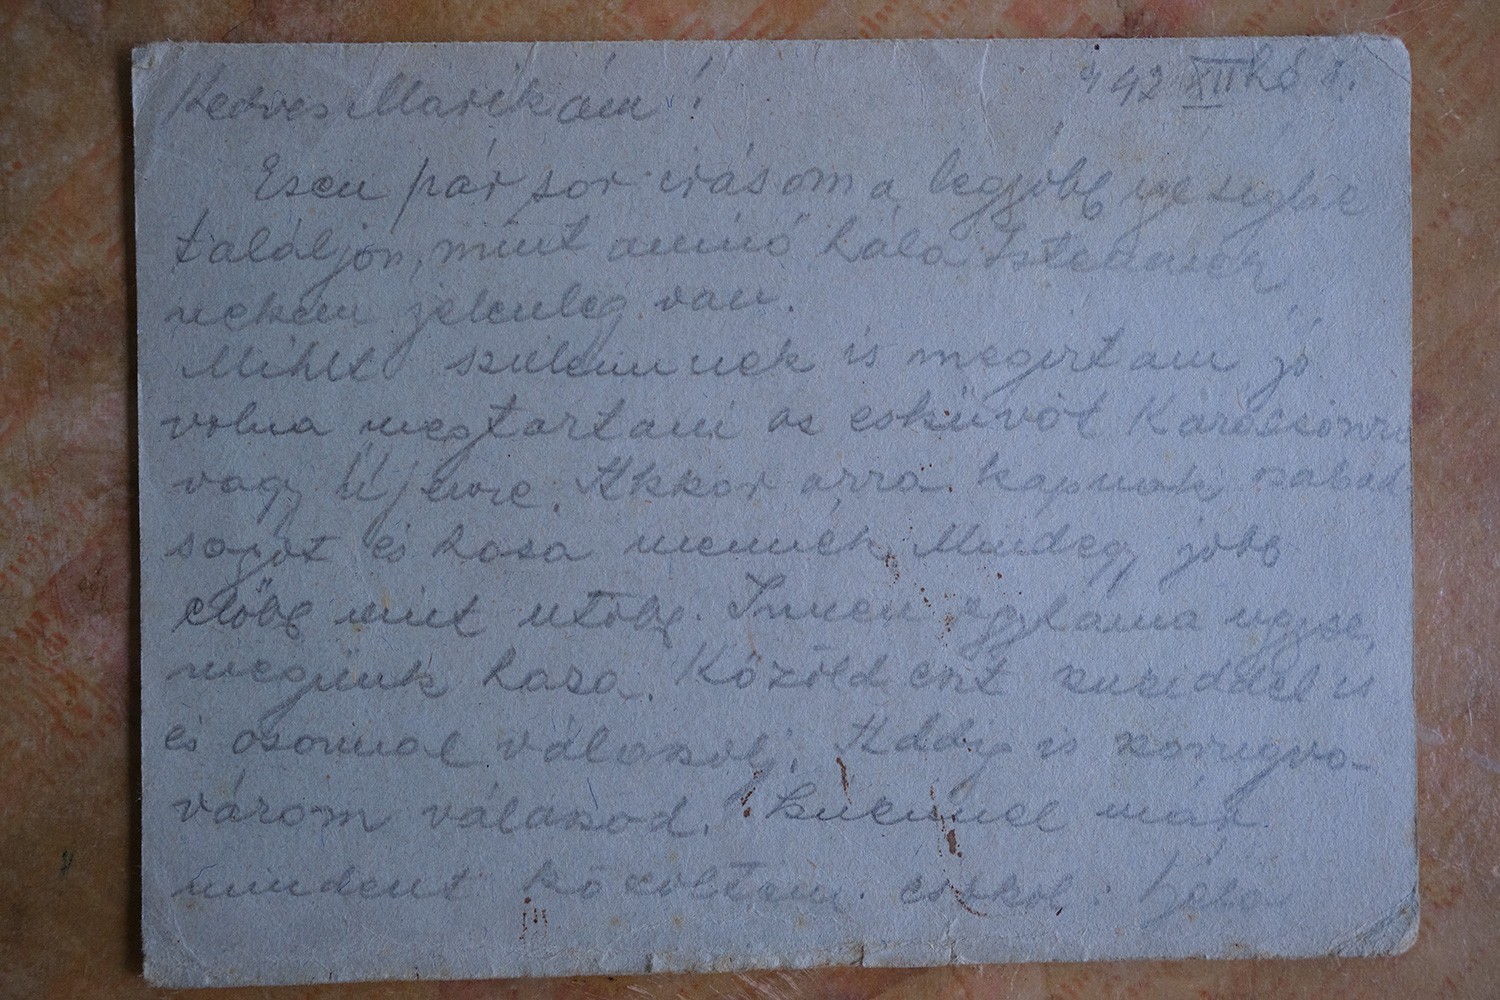 Kedves Marikám! 942 XII hó 8.
Ezen pár sor irásom a legjobb egésségbe
találjon, mint aminő hála Istennek
nekem jelenleg van.
Mihlt szüleimnek is megirtam jó
volna megtartani az esküvöt Karácsonra
vagy Újévre. Akkor arra kapnák szabad
ságot és haza mennék. Mindegy jobb
előbb mint utóbb. Innen egyhama ugyse
megyünk haza. Közöld ezt szüleiddel is
és azonnal válaszolj. Addig is szorongva
várom válaszod. Szüleimnel már
mindent közöltem. csókol: Béla